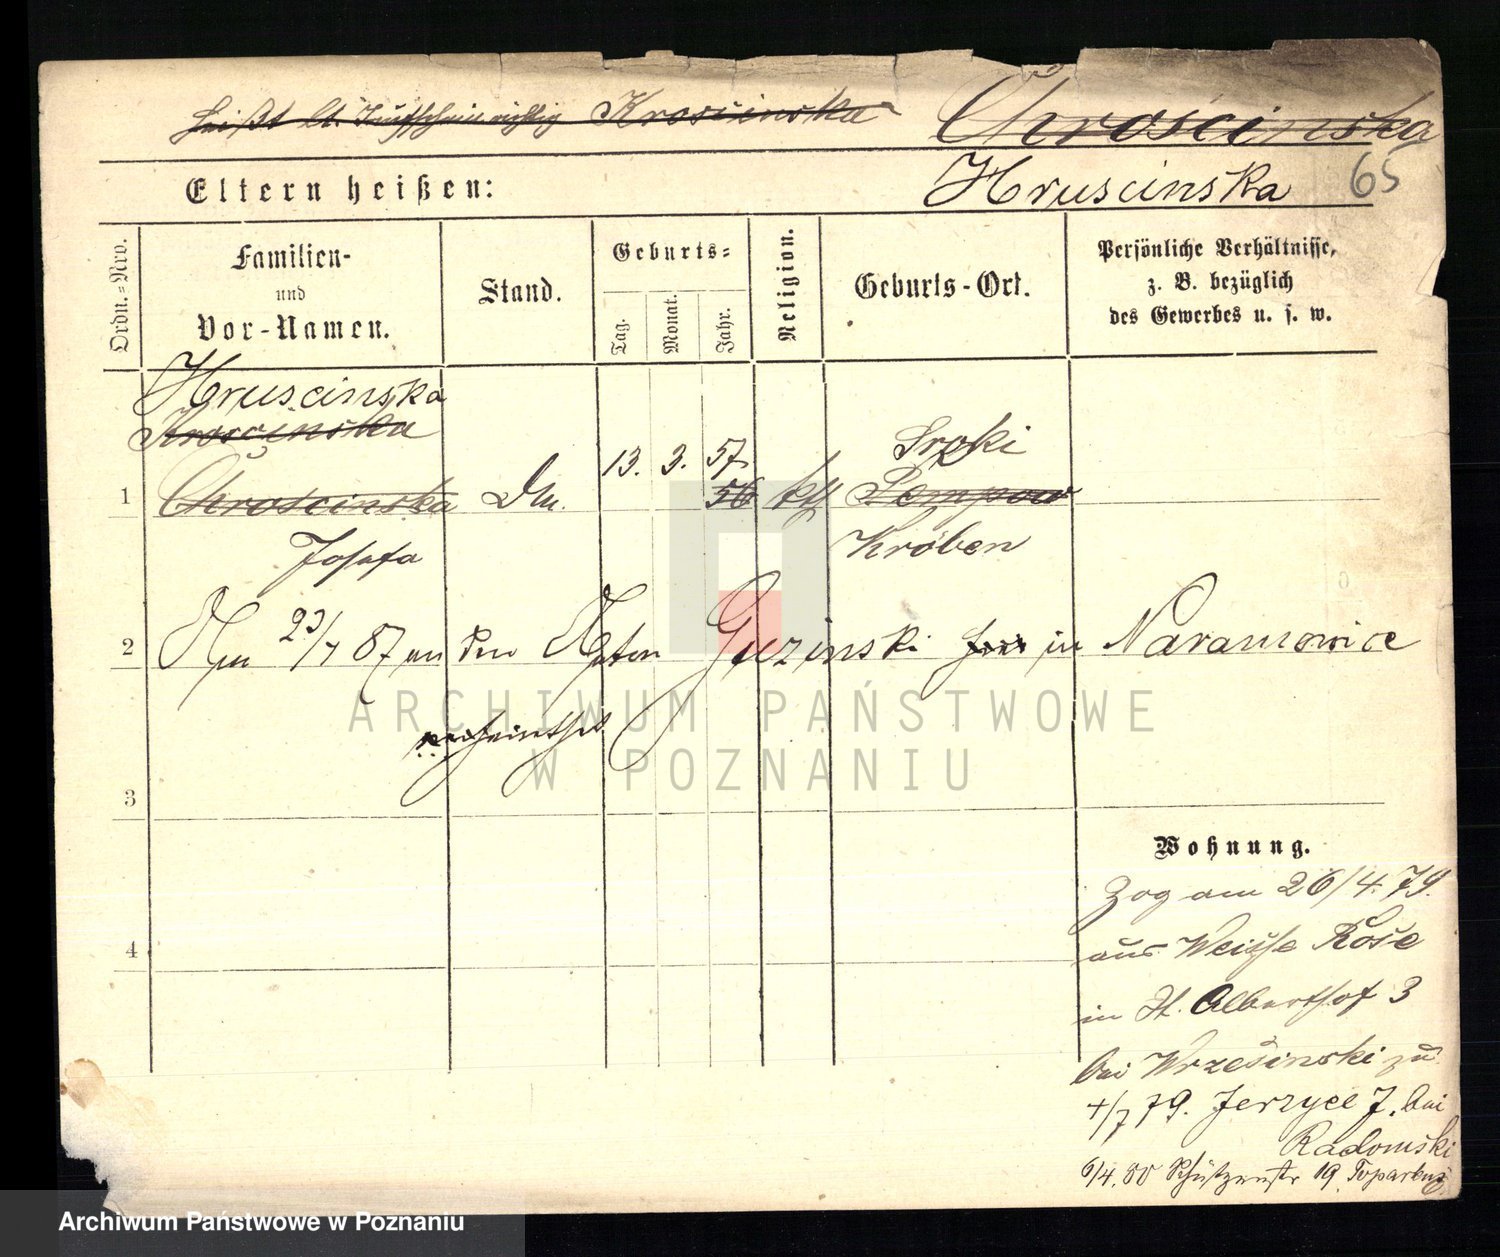 heißt lt. Taufschein richtig Kroscinska Chroscinska
Eltern heißen: Hruscinska 65
Ordn.-Nro.
Familien-
und
Vor-Namen.
Stand.
Geburts-
Tag.
Monat.
Jahr.
Religion.
Geburts-Ort.
Persönliche Verhältnisse,
z. B. bezüglich
des Gewerbes u. s. w.
Hruscinska
Kroscinska
Sroki
13. 3. 57
1 Chroscinska 56 kth Pempow
Josefa Kröben
2 Am 23/7 87 an den Anton Guzinski in Naramowice
verheirathet
ARCHIWUM PAŃSTWOWE
W POZNANIU
3
Wohnung.
Zog am 26/4. 79.
4 aus Weisse Rose
in St. Alberthof 3
bei Wrzesinski zu
4/7 79. Jerzyce 7. bei
Radomski
6/4. 80 Schützenstr 19
Archiwum Państwowe w Poznaniu